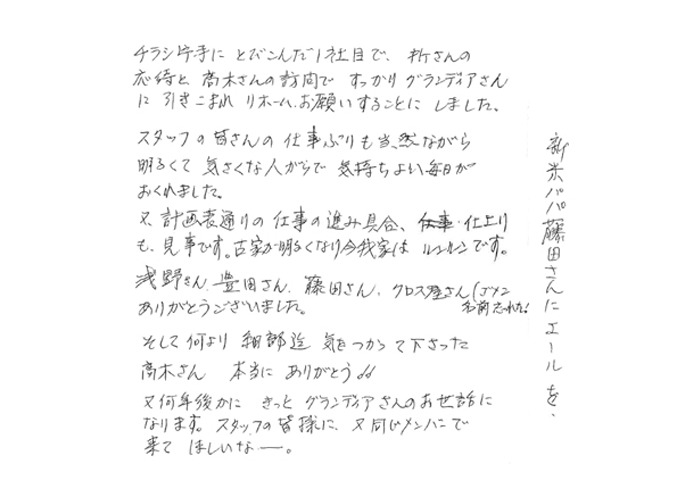 チラシ片手に とびこんだ1社目で、析さんの
応待と 高木さんの訪問で すっかり グランディアさん
に 引きこまれ リホーム、お願いすることに しました。
スタッフの 皆さんの 仕事ぶりも 当然ながら
明るくて 気さくな人がらで 気持ちよい毎日が
おくれました。
又 計画表通りの 仕事の進み具合、仕事・仕上り
も、見事です。古家が明るくなり今我家は ルンルンです。
浅野さん、豊田さん、藤田さん、クロス屋さん(ゴメン
名前忘れた!
ありがとうございました。
そして何より 細部迄 気をつかって下さった
高木さん 本当に ありがとう!!
又何年後かに きっと グランディアさんのお世話に
なります。スタッフの皆様に、又同じメンバーで
来て ほしいなー。
新米パパ藤田さんにエールを、